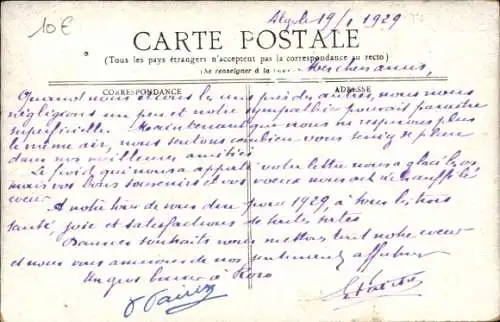 10€
Alger 19/1 1929
CARTE POSTALE
(Tous les pays étrangers n'acceptent pas la correspondance au recto)
(Se renseigner à la
Mes chers amis,
CORRESPONDANCE
ADRESSE
Quand nous étions les uns près des autres, nous nous
négligions un peu et notre sympathie pouvait paraître
superficielle. Maintenant que nous ne respirons plus
le même air, nous sentons combien vous tenez de place
dans nos meilleures amitiés
Le froid qui nous a apporté votre lettre nous a glacé les os
mais vos bons souvenirs et vos voeux nous ont réchauffé le
coeur
A notre tour de vous dire pour 1929 à tous les trois
santé, joie et satisfactions de toute sortes
Bonnes souhaits nous mettons tout notre coeur
et nous vous assurons de nos sentiments affectueux
Un gros baiser à